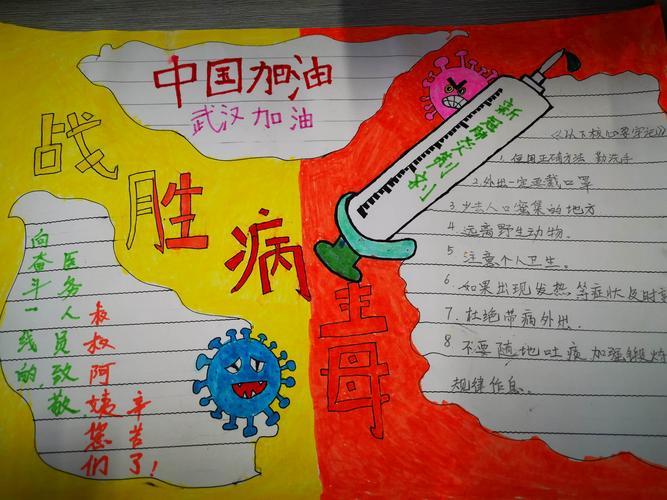 中国加油
武汉加油
战胜病毒
向奋斗一线的
医务人员致敬
叔叔阿姨您们
辛苦了!
《以下核心要牢记
1. 使用正确方法 勤洗手
2.外出一定要戴口罩
3 少去人口密集的地方
4. 远离野生动物.
5 注意个人卫生。
6. 如果出现发热等症状及时
7. 杜绝带病外出.
8 不要随地吐痰 加强锻炼
规律作息.